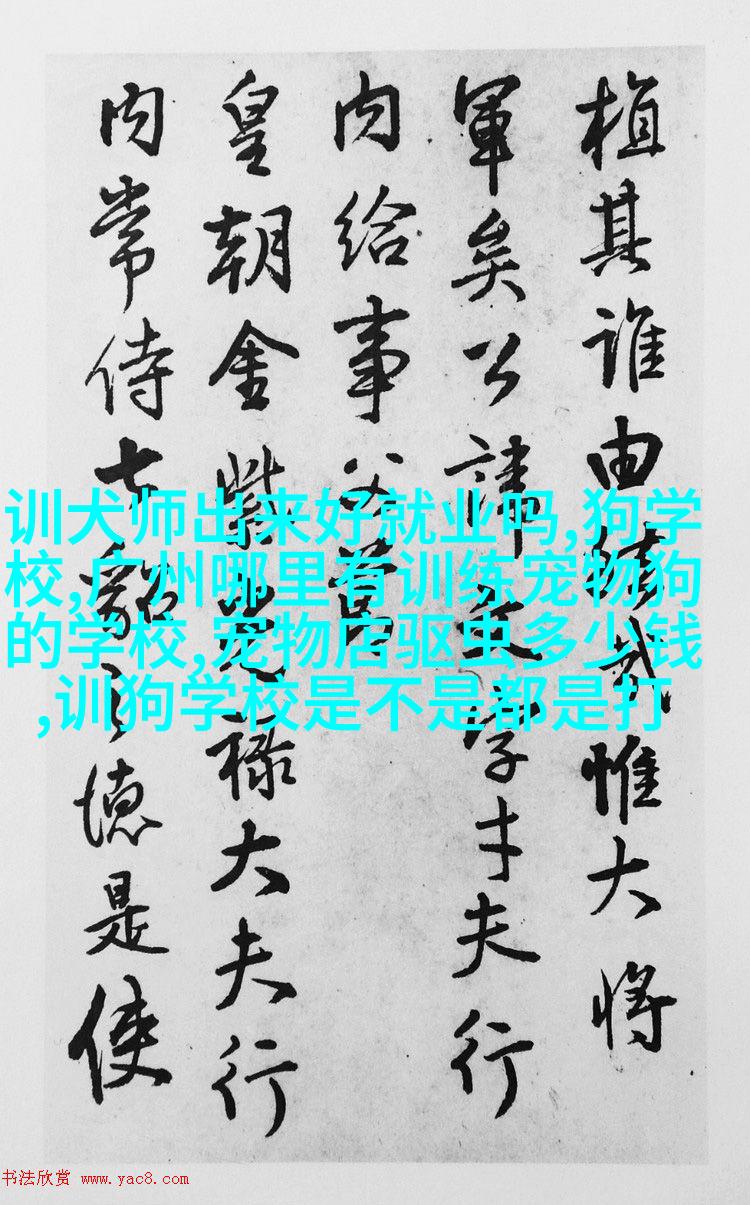 植其誰由武惟大將
軍矣公諱文字才夫行
內給事父
皇朝金紫光祿大夫行
內常侍七貂之德是使
训犬师出来好就业吗,狗学
校,广州哪里有训练宠物狗
的学校,宠物店驱虫多少钱
,训狗学校是不是都是打
书法欣赏 www.yac8.com